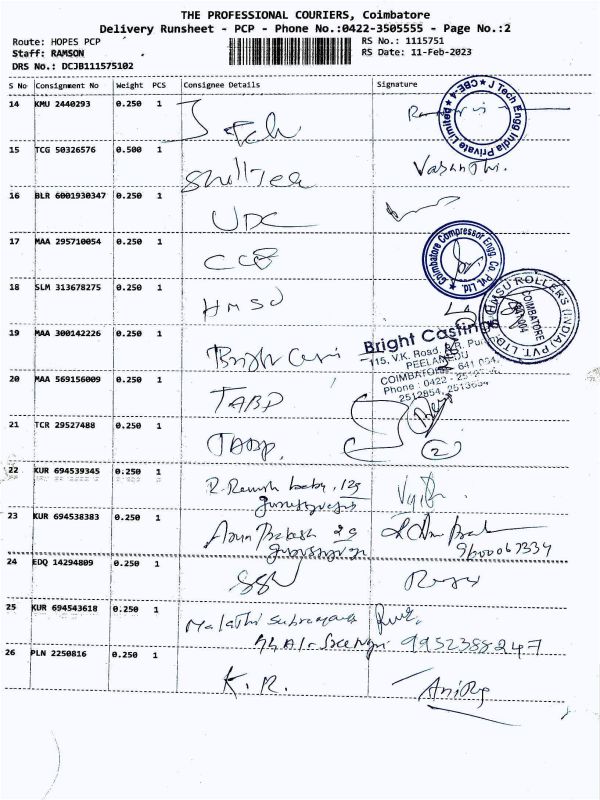 THE PROFESSIONAL COURIERS, Coimbatore
Delivery Runsheet - PCP - Phone No.:0422-3505555 - Page No.:2
Route: HOPES PCP
RS No.: 1115751
Staff: RAMSON
RS Date: 11-Feb-2023
DRS No.: DCJB111575102
S No Consignment No Weight PCS Consignee Details Signature
14 KMU 2440293 0.250 1 J Tech
J Tech Engg India Private Limited ★ CBE-4 ★
15 TCG 50326576 0.500 1 Vasanthi.
16 BLR 6001930347 0.250 1 UDC
17 MAA 295710054 0.250 1 CCE
Coimbatore Compressor Engg. Co. Pvt. Ltd. ★
18 SLM 313678275 0.250 1 HMSU
HMSU ROLLERS (INDIA) PVT. LTD
COIMBATORE
641 004
19 MAA 300142226 0.250 1 Bright
Bright Castings
115, V.K. Road,
PEELAMEDU
COIMBATORE - 641 004.
Phone : 0422 -
2512854, 2513654
20 MAA 569156009 0.250 1 TABP
21 TCR 29527488 0.250 1 TABP. 2
22 KUR 694539345 0.250 1 R. Ramesh baby, 129
23 KUR 694538383 0.250 1 Arun Prakash 29
9600067334
24 EDQ 14294809 0.250 1 SSN
25 KUR 694543618 0.250 1 Malathi
9952388247
26 PLN 2250816 0.250 1 K. R.